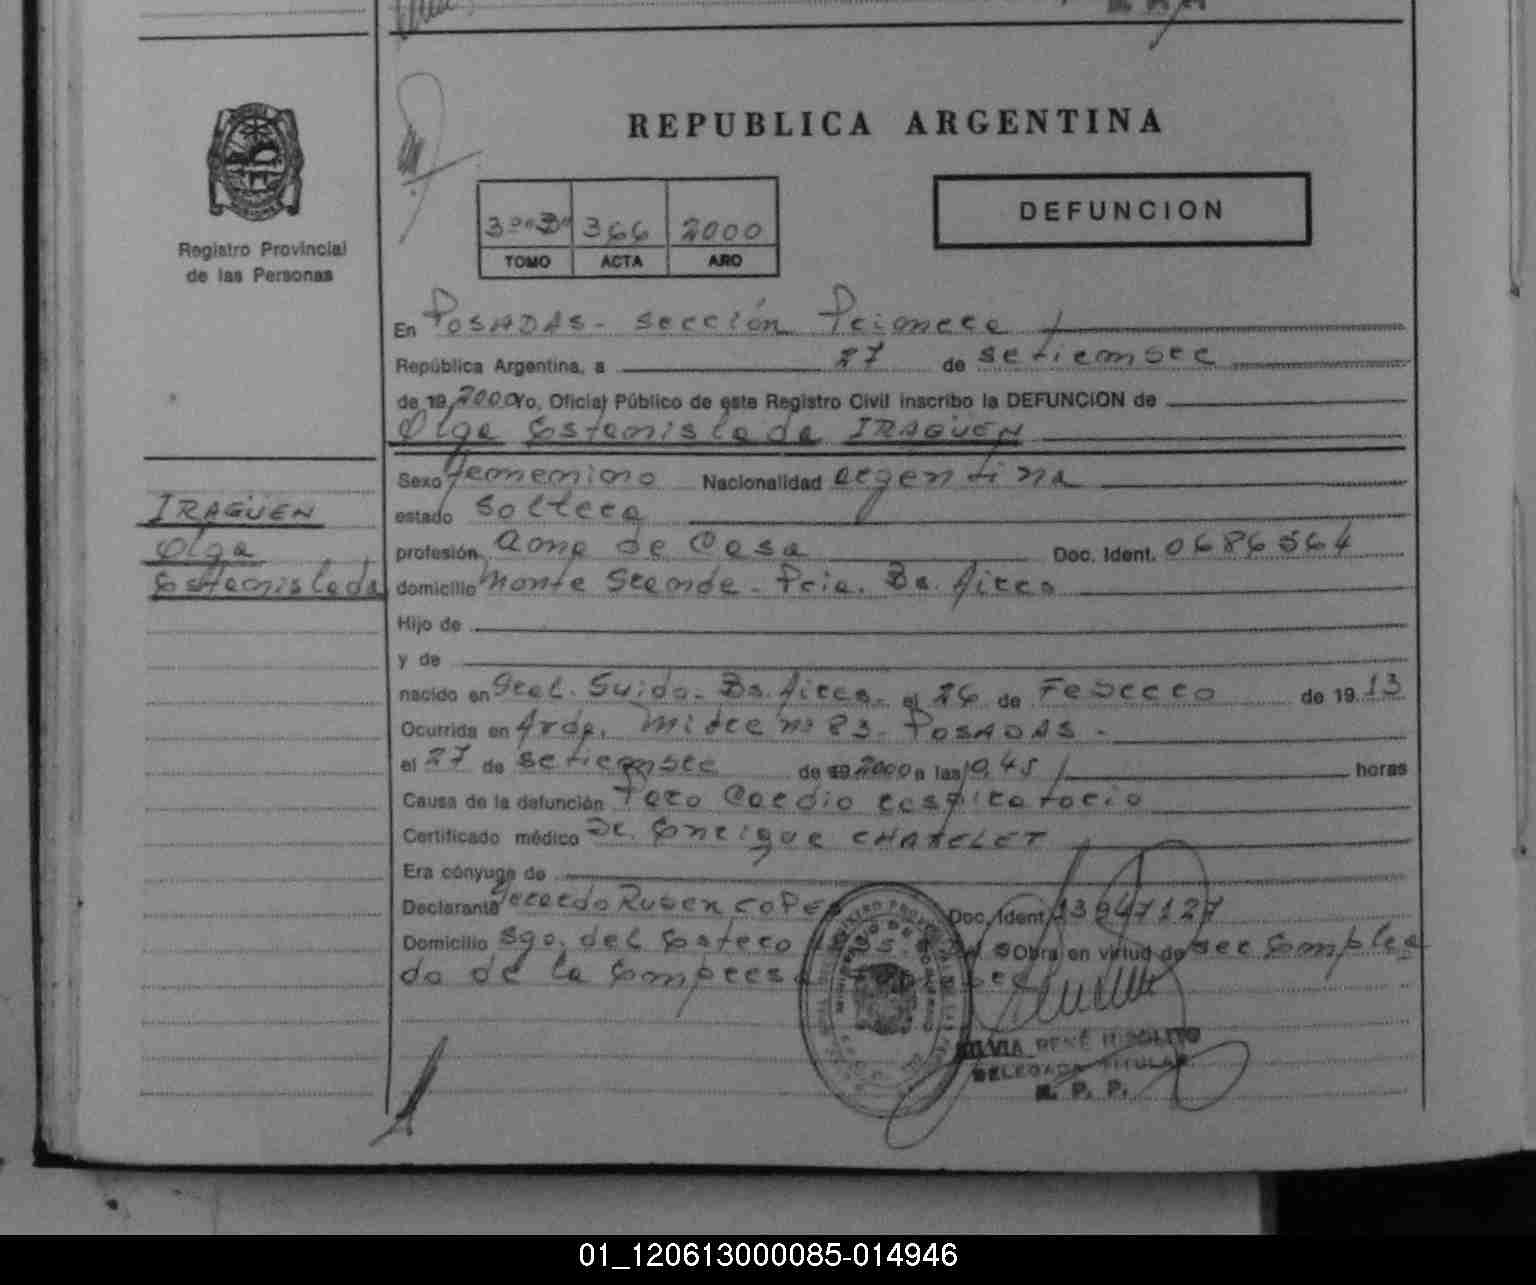 REPUBLICA ARGENTINA
Registro Provincial
de las Personas
366 2000
TOMO ACTA AÑO
DEFUNCION
En POSADAS - Sección Primera
República Argentina, a 27 de setiembre
de 19 2000 Yo, Oficial Público de este Registro Civil inscribo la DEFUNCION de
Olga Estanislada IRAGÜEN
IRAGÜEN
Olga
Estanislada
Sexo femenino Nacionalidad argentina
estado soltera
profesión ama de casa Doc. Ident. 0686564
domicilio Monte Grande - Pcia. Bs. Aires
Hijo de
y de
nacido en Gral. Guido - Bs. Aires - el 26 de Febrero de 1913
Ocurrida en Avda. Mitre nº 83 - POSADAS -
el 27 de setiembre de 19 2000 a las 0,45 horas
Causa de la defunción Paro Cardio respiratorio
Certificado médico Dr. Enrique CHATELET
Era cónyuge de
Declarante Gerardo Ruben Doc. Ident. 13947127
Domicilio Sgo. del Estero Obra en virtud de ser emplea
do de la empresa
SILVIA RENÉ HIPOLITO
DELEGADA TITULAR
R. P. P.
01_120613000085-014946